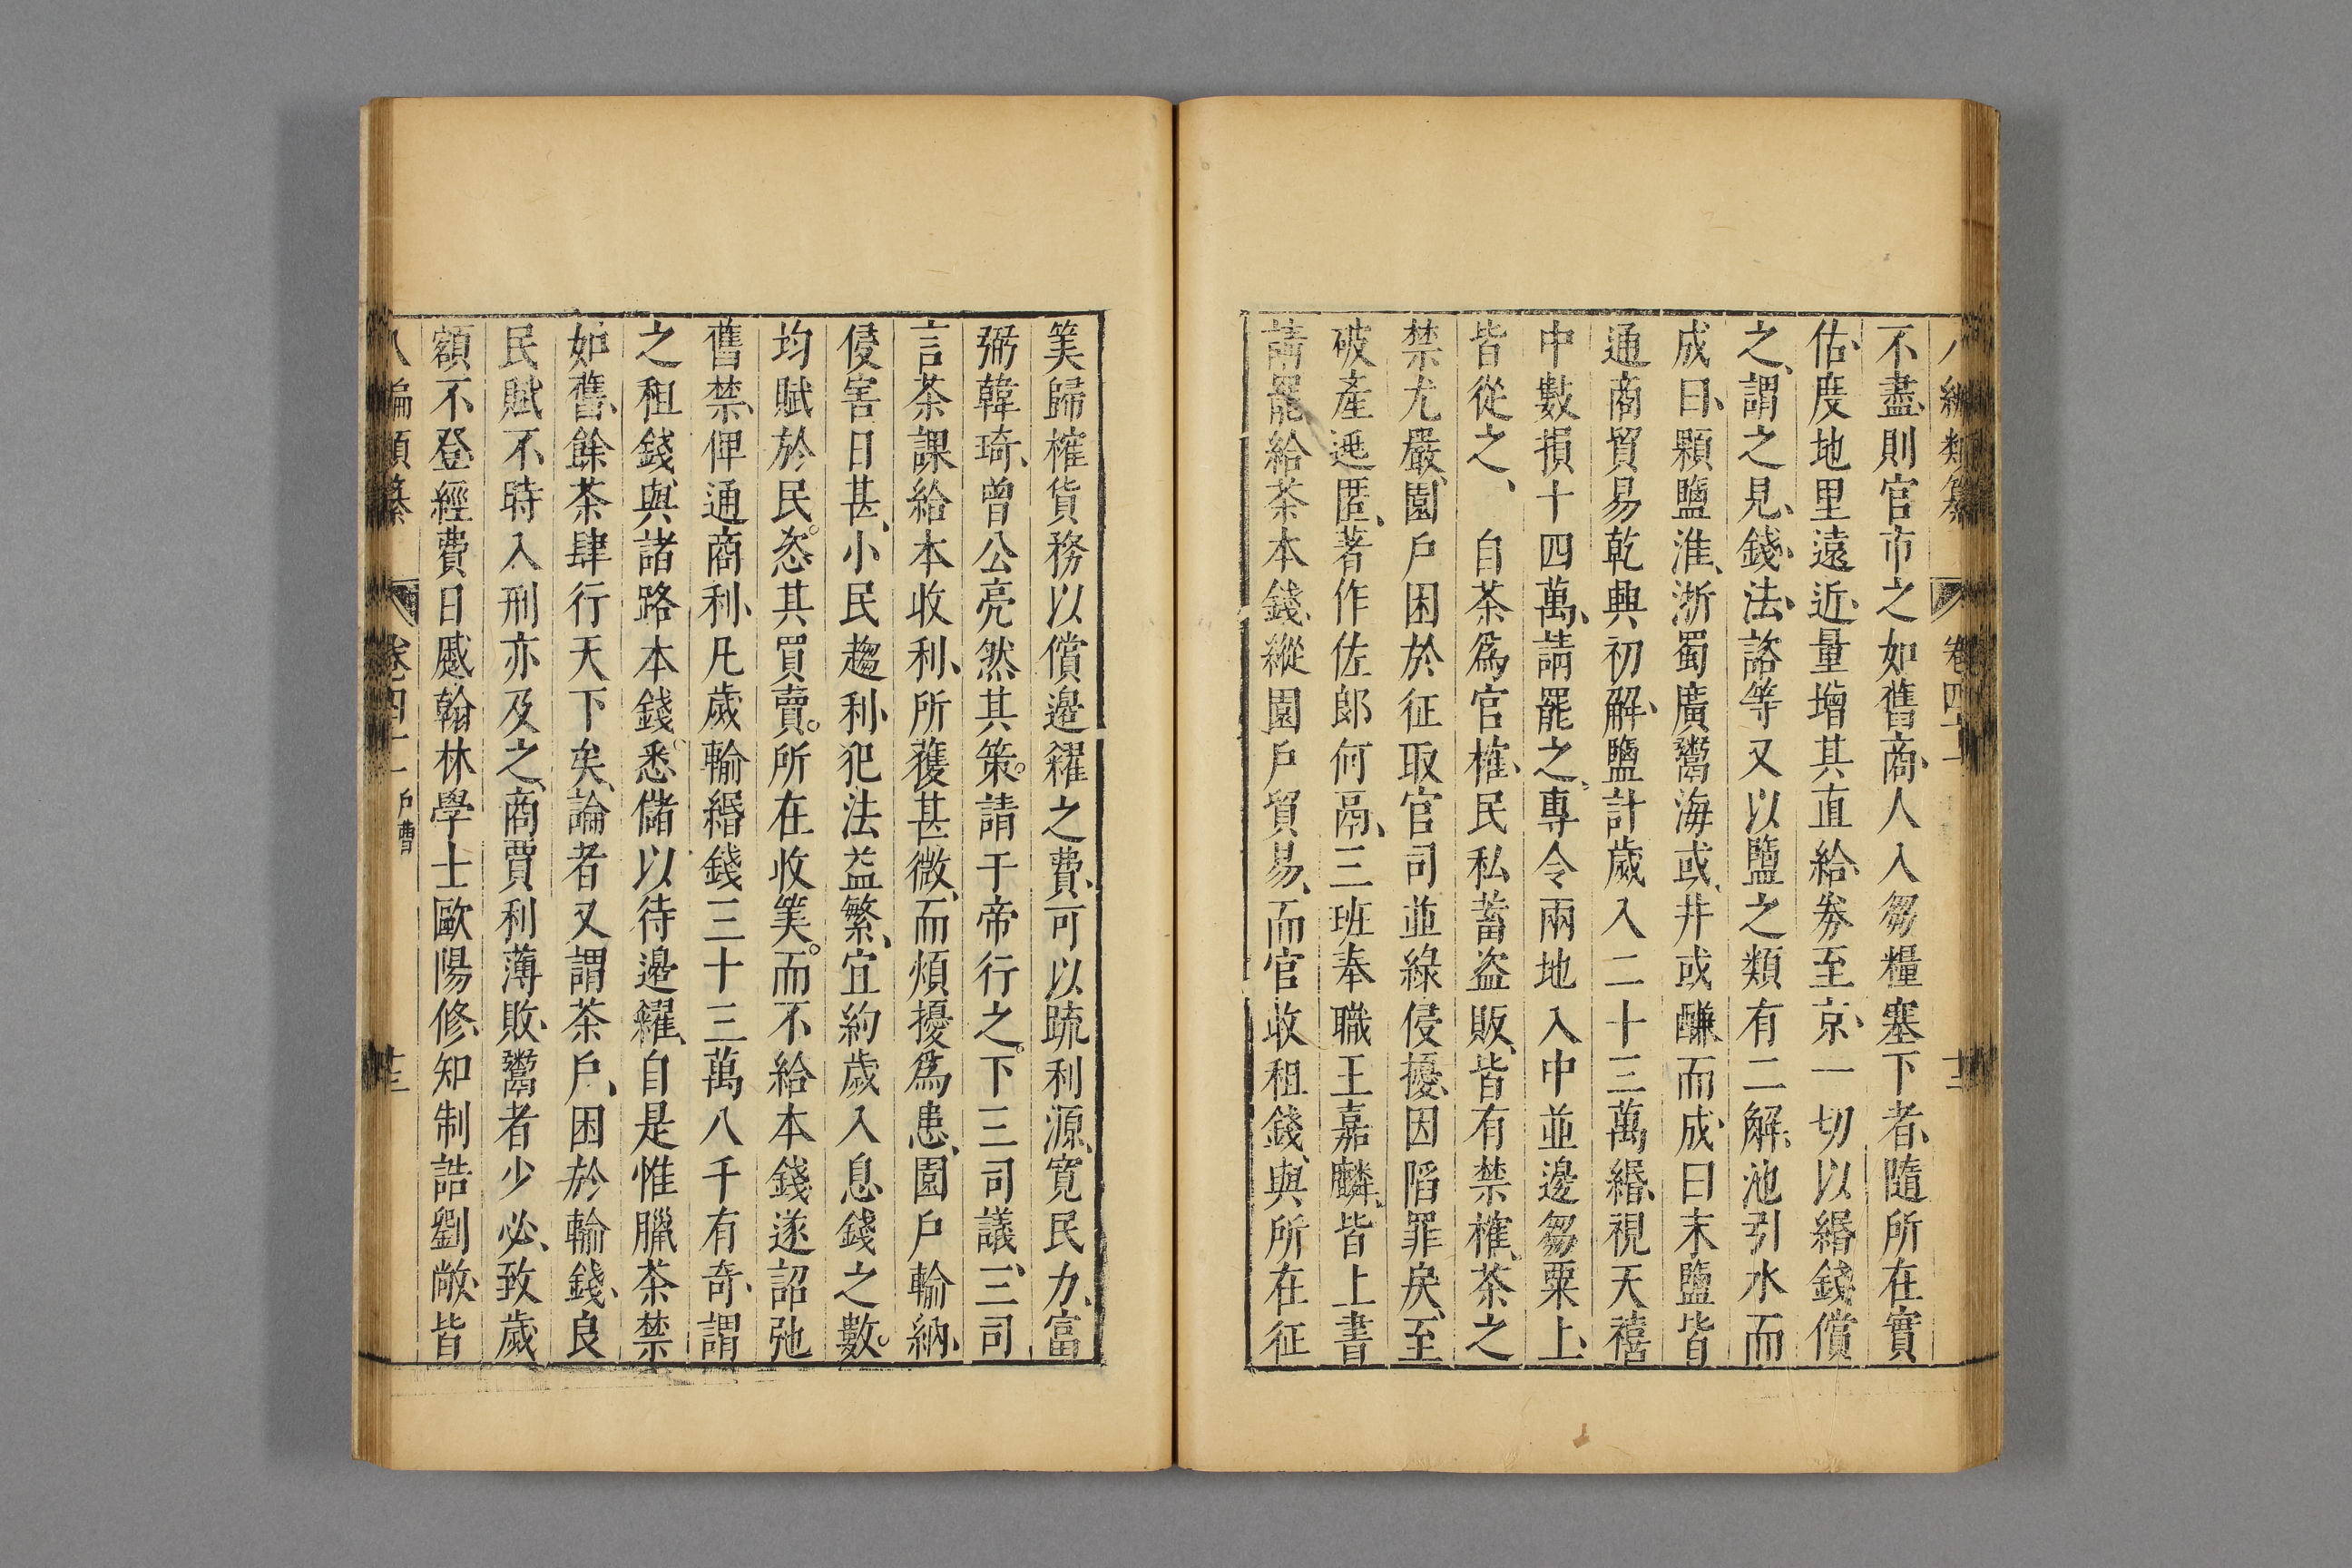 八編類纂 卷四十一 十二
不盡、則官市之如舊、商人入芻糧塞下者、隨所在實
估、度地里遠近、量增其直、給劵至京、一切以緡錢償
之、謂之見錢法、諮等又以鹽之類有二、解池引水而
成、曰顆鹽、淮浙蜀廣鬻海或井或鹻而成、曰末鹽、皆
通商貿易、乾興初、解鹽計歲入二十三萬緡、視天禧
中數損十四萬、請罷之、專令兩地入中並邊芻粟、上
皆從之、 自茶爲官榷、民私蓄盜販、皆有禁榷、茶之
禁尤嚴、園戶困於征取、官司並緣侵擾、因陷罪戾、至
破產逃匿、著作佐郎何鬲、三班奉職王嘉麟、皆上書
請罷給茶本錢、縱園戶貿易、而官收租錢、與所在征
筭歸榷貨務以償邊糴之費、可以疏利源、寬民力、富
弼韓琦、曾公亮然其策。請于帝行之。下三司議、三司
言茶課給本收利、所獲甚微、而煩擾爲患、園戶輸納、
侵害日甚、小民趨利、犯法益繁、宜約歲入息錢之數。
均賦於民。恣其買賣。所在收筭。而不給本錢、遂詔弛
舊禁、俾通商利、凡歲輸緡錢三十三萬八千有奇、謂
之租錢、與諸路本錢。悉儲以待邊糴、自是惟臘茶禁
如舊、餘茶肆行天下矣、論者又謂茶戶、困於輸錢、良
民賦不時入、刑亦及之、商賈利薄敗、鬻者少、必致歲
額不登、經費日蹙、翰林學士歐陽修、知制誥劉敞、皆
八編類纂 卷四十一 戶曹 十三